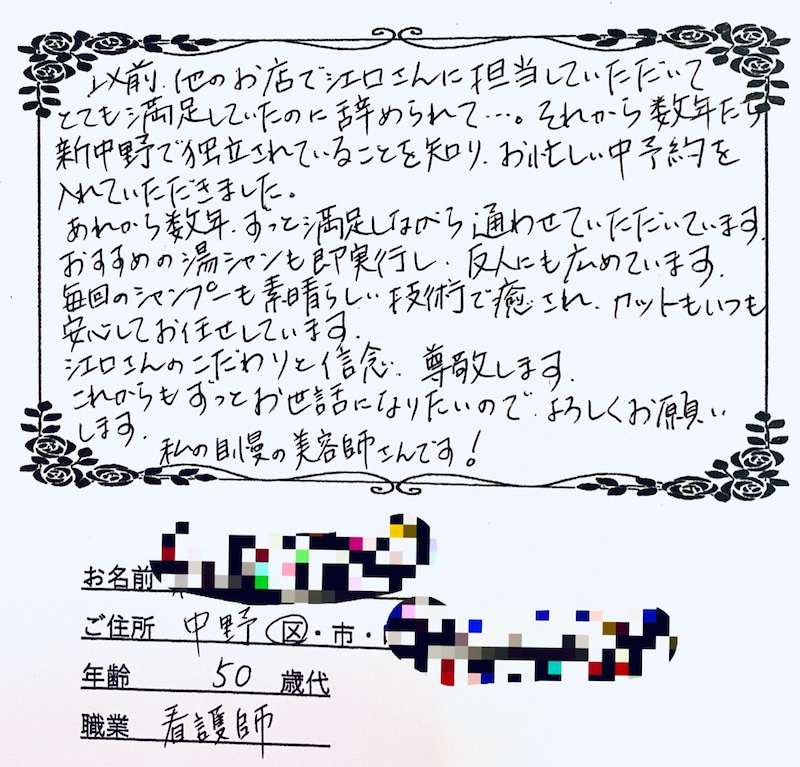 以前、他のお店で江口さんに担当していただいて
とても満足していたのに辞められて…。それから数年たち
新中野で独立されていることを知り、お忙しい中予約を
入れていただきました。
あれから数年、ずっと満足しながら通わせていただいています。
おすすめの湯シャンも即実行し、友人にも広めています。
毎回のシャンプーも素晴らしい技術で癒され、カットもいつも
安心してお任せしています。
江口さんのこだわりと信念、尊敬します。
これからもずっとお世話になりたいので、よろしくお願い
します。
私の自慢の美容師さんです!
お名前
ご住所 中野 区・市・
年齢 50 歳代
職業 看護師